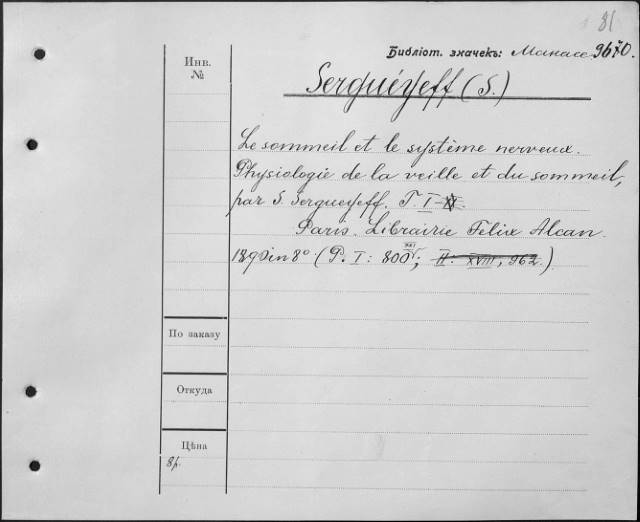 81
Библіот. значекъ: Манасе 9670.
Инв.
№
Serguéyeff (S.)
Le sommeil et le système nerveux.
Physiologie de la veille et du sommeil,
par S. Sergueyeff. T. I-II.
Paris. Librairie Felix Alcan.
1890 in 8º (P. I: XXI 800; II: XVIII, 962.)
По заказу
Откуда
Цѣна
8р.